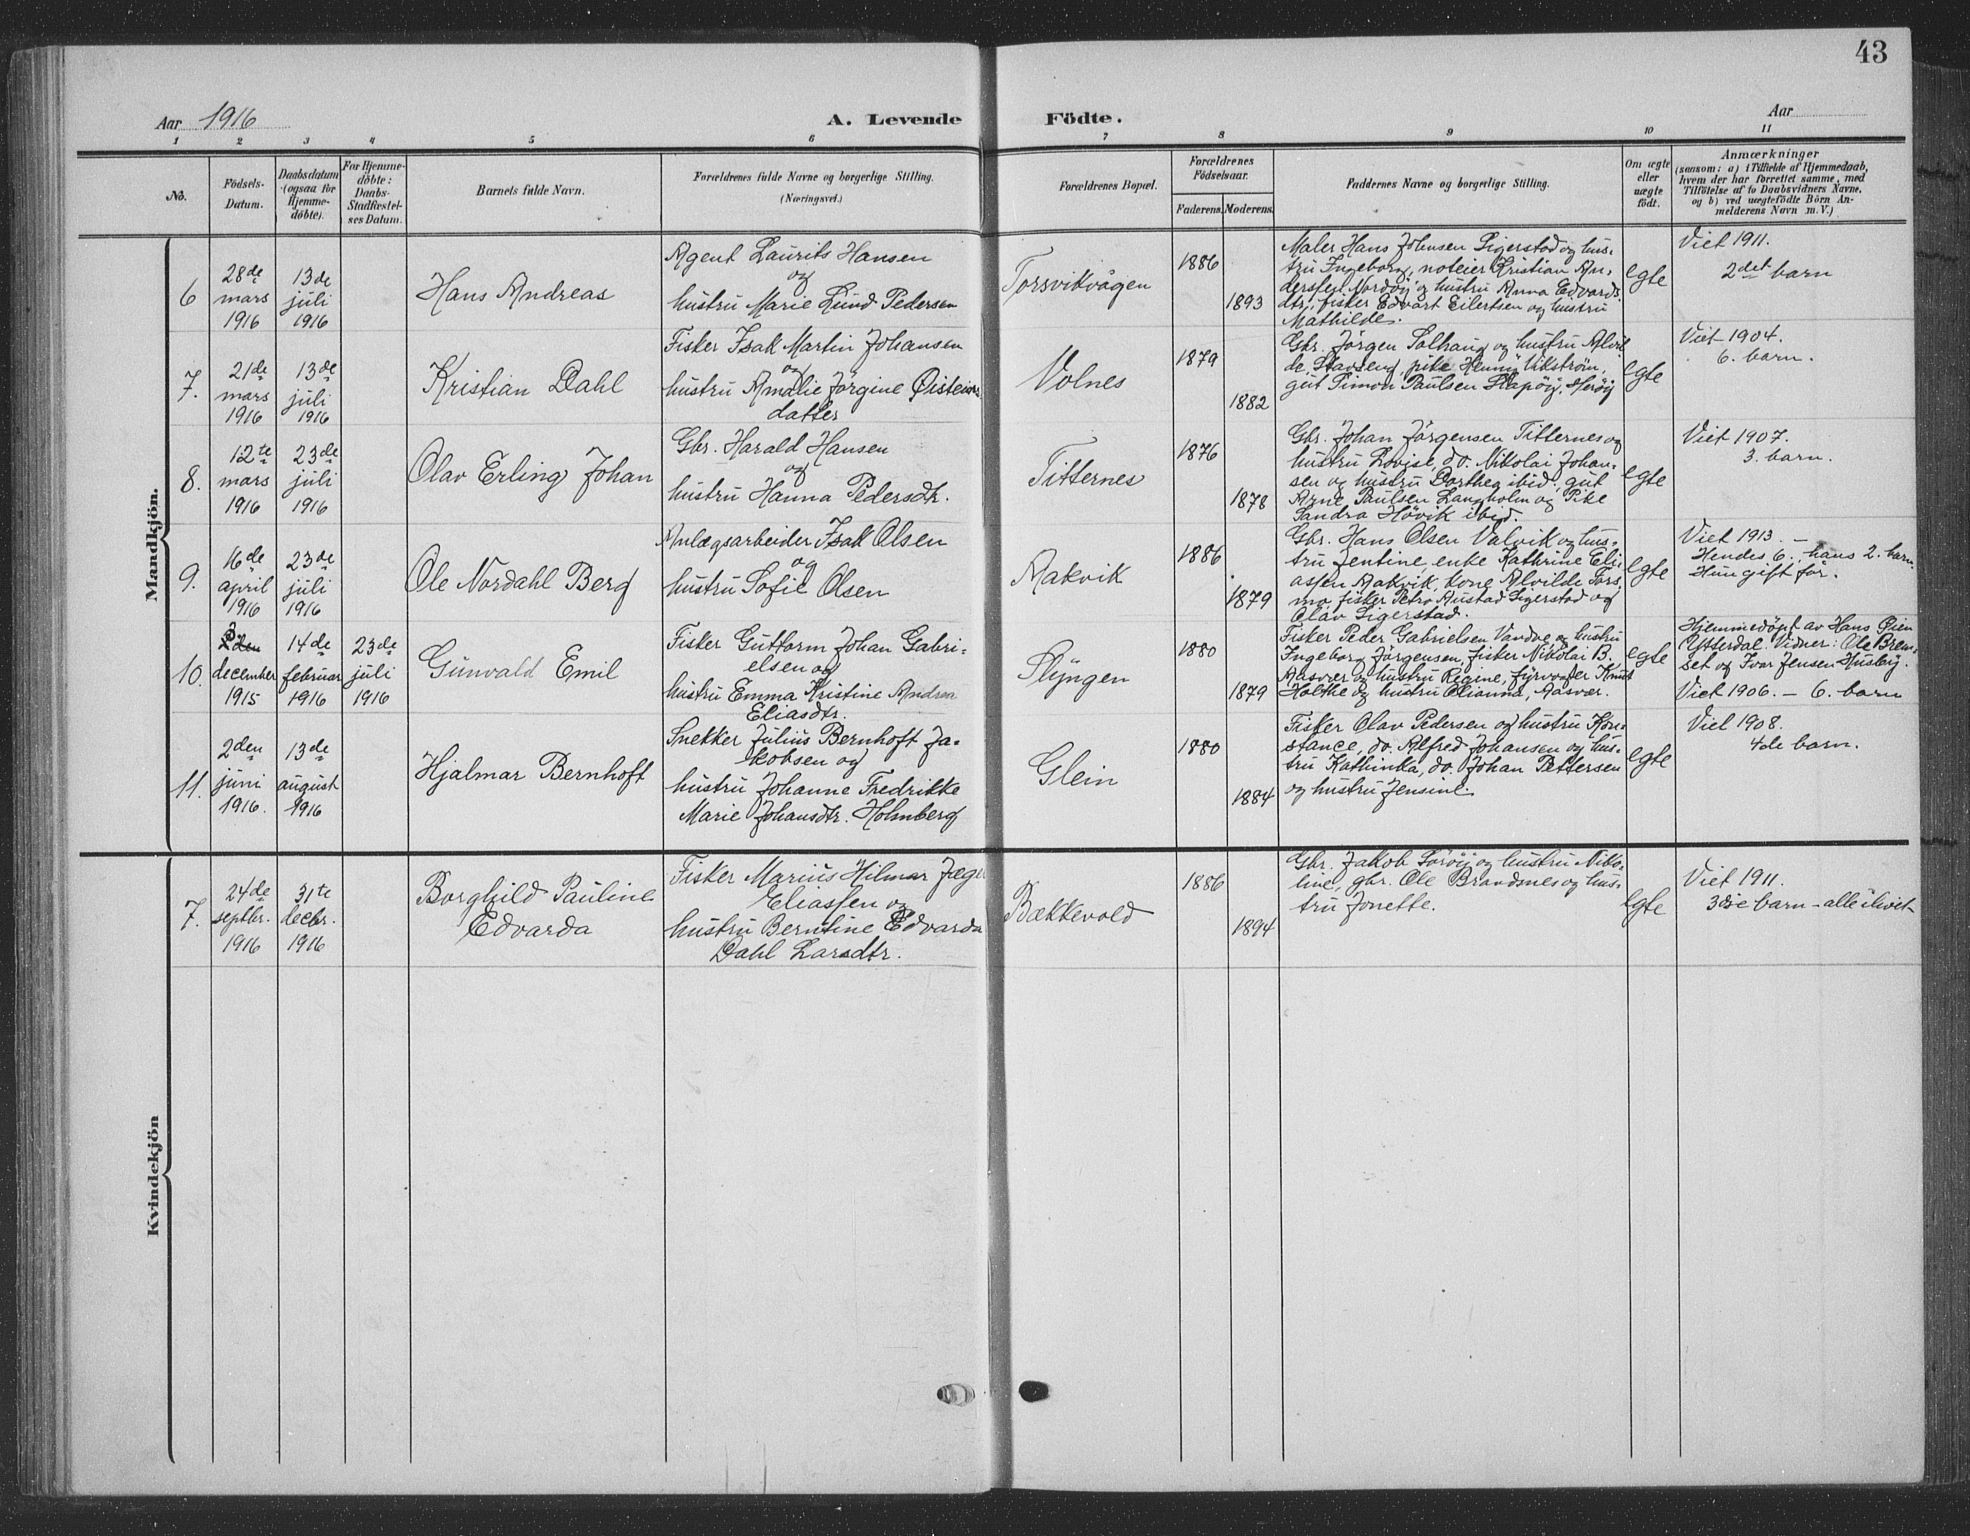 43
Aar 1916
A. Levende Födte.
Aar
1 2 3 4 5 6 7 8 9 10 11
No.
Födsels-
Datum.
Daabsdatum
(ogsaa for
Hjemme-
döbte).
For Hjemme-
döbte:
Daabs-
Stadfæstel-
ses Datum.
Barnets fulde Navn.
Forældrenes fulde Navne og borgerlige Stilling.
(Næringsvei.)
Forældrenes Bopæl.
Forældrenes
Födselsaar.
Faderens. Moderens.
Faddernes Navne og borgerlige Stilling.
Om ægte
eller
uægte
födt.
Anmærkninger
(saasom: a) i Tilfælde af Hjemmedaab,
hvem der har forrettet samme, med
Tilföielse af to Daabsvidners Navne,
og b) ved uægtefödte Börn An-
melderens Navn m. V.)
Mandkjön.
6
28de
mars
1916
13de
juli
1916
Hans Andreas
Agent Laurits Hansen
og
hustru Marie Lund Pedersen
Torsvikvågen
1886
1893
Maler Hans Johnsen Sigerstad og hus-
tru Ingeborg, noteier Kristian An-
dersen Nordöy og hustru Anna Edvards-
dtr, fisker Edvart Eilertsen og hustru
Mathilde.
egte
Viet 1911.
2det barn
7.
21de
mars
1916
13de
juli
1916
Kristian Dahl
Fisker Isak Martin Johansen
og
hustru Amalie Jörgine Øisteins
datter
Volnes
1879
1882
Gbr. Jörgen Solhaug og hustru Alvil-
de Stavseng, pike Henny Vikström,
gut Simon Paulsen Slapöy, Heröy
egte
Viet 1904.
6. barn.
8.
12te
mars
1916
23de
juli
1916
Olav Erling Johan
Gbr. Harald Hansen
og
hustru Hanna Pedersdtr.
Titternes
1876
1878
Gbr. Johan Jörgensen Titternes og
hustru Lovise, do. Nikolai Johan-
sen og hustru Dorthea ibid, gut
Arne Paulsen Langholm og Pike
Sandra Hövik ibid.
egte
Viet 1907.
3. barn.
9.
16de
april
1916
23de
juli
1916
Ole Nordahl Berg
Anlægsarbeider Isak Olsen
og
hustru Sofie Olsen
Aakvik
1886
1879
Gbr. Hans Olsen Valvik og hus-
tru Jentine, enke Kathrine Eli-
assen Aakvik, kone Alvilde Fors-
mo, fisker Petro Austad Sigerstad og
Olav Sigerstad.
egte
Viet 1913. –
Hendes 6., hans 2. barn.
Hun gift för.
10.
december
1915
14de
februar
1916
23de
juli
1916
Gunvald Emil
Fisker Guttorm Johan Gabri-
elsen og
hustru Emma Kristine Andrea
Eliasdtr.
Slyngen
1880
1879
Fisker Peder Gabrielsen Vandve og hustru
Ingeborg Jörgensen, fisker Nikolai B.
Aasvær og hustru Regine, fyrvogter Knut
Holthe og hustru Olianna, Aasvær.
egte
Hjemmedöpt av Hans Öien
Ytterdal. Vidner: Ole Brem-
set og Ivar Jensen Husby.
Viet 1906. – 6. barn
11.
2den
juni
1916.
13de
august
1916
Hjalmar Bernhoft
Snekker Julius Bernhoft Ja-
kobsen og
hustru Johanne Fredrikke
Marie Johansdtr. Holmberg
Glein
1880
1884
Fisker Olav Pedersen og hustru Kon-
stance, do. Alfred Johansen og hus-
tru Kathinka, do. Johan Pettersen
og hustru Jensine.
egte
Viet 1908.
4de barn.
Kvindekjön
7.
24de
septbr.
1916
31te
decbr.
1916
Borghild Pauline
Edvarda
Fisker Marius Hilmar Jæger
Eliassen og
hustru Berntine Edvarda
Dahl Larsdtr.
Bækkevold
1886
1894
Gbr. Jakob Söröy og hustru Niko-
line, gbr. Ole Brandsnes og hus-
tru Jonette.
egte
Viet 1911.
3die barn – alle ilivet –